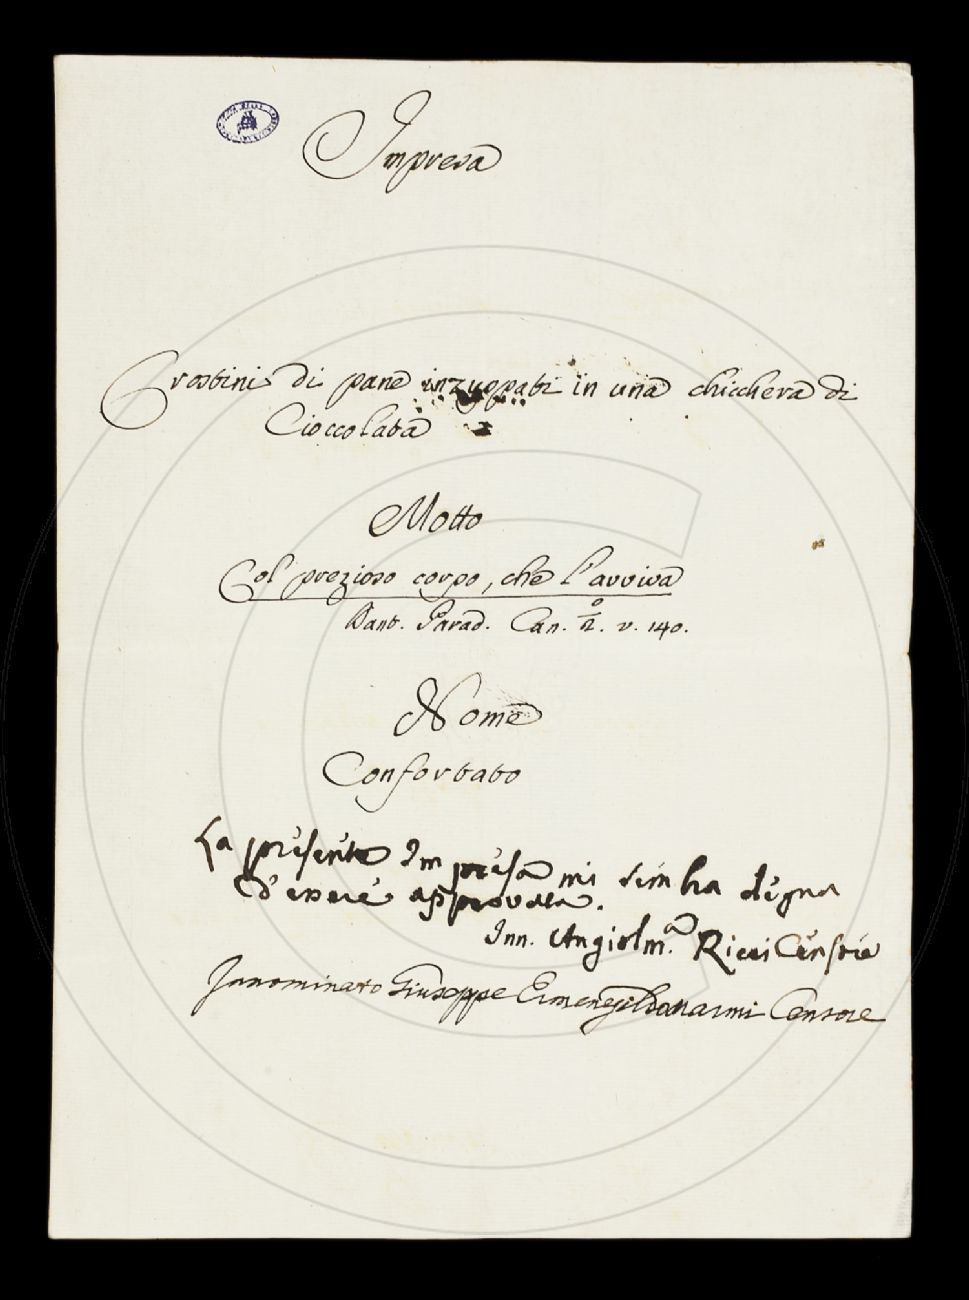 Impresa
Crostini di pane inzuppati in una chicchera di
Cioccolata
Motto
Col prezioso corpo, che l'avviva
Dant. Parad. Can. 2.° v. 140.
Nome
Confortato
La presente Impresa mi sembra degna
d'essere approvata.
Inn. Angiol M.ª Ricci Censore
Innominato Giuseppe Ermenegildo Censore